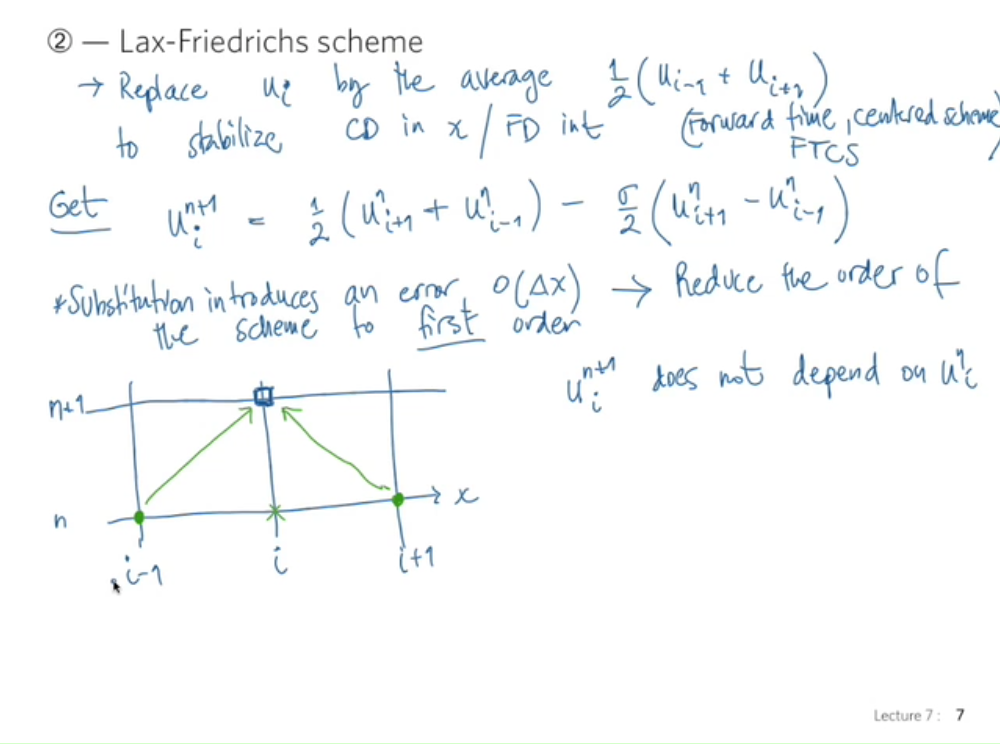 ② — Lax-Friedrichs scheme
→ Replace u_i by the average 1/2 (u_{i-1} + u_{i+1})
to stabilize CD in x / FD in t (Forward time, centred scheme)
FTCS
Get u_i^{n+1} = 1/2 (u_{i+1}^n + u_{i-1}^n) - σ/2 (u_{i+1}^n - u_{i-1}^n)
*Substitution introduces an error O(Δx) → Reduce the order of
the scheme to first order
u_i^{n+1} does not depend on u_i^n
n+1
n
x
i-1 i i+1
Lecture 7: 7